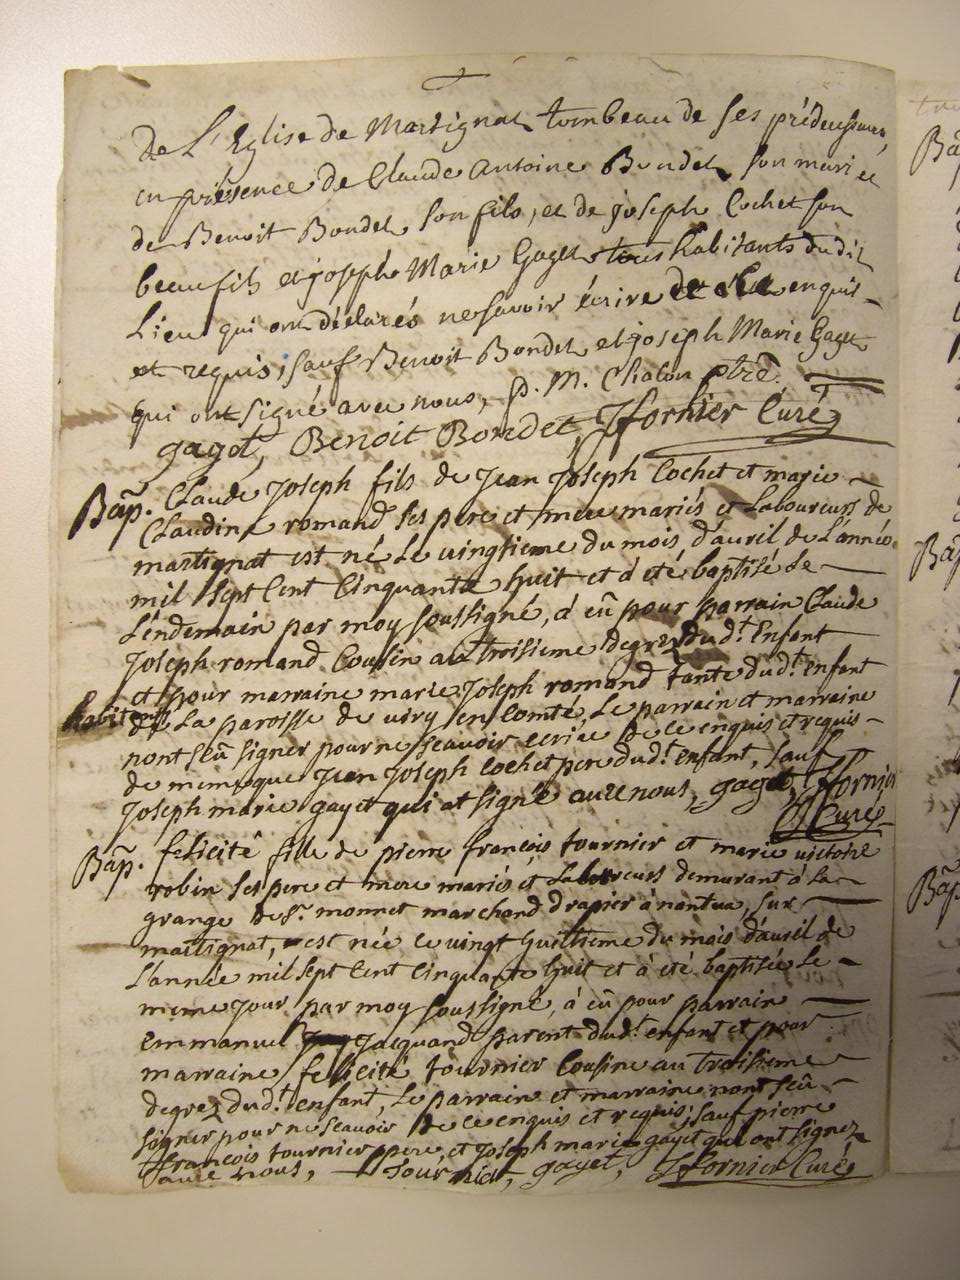 de L'Eglise de Martignat tombeau de ses prédecesseurs,
en présence de Claude Antoine Bondet son mari et
de Benoit Bondet son fils, et de joseph Cochet son
beaufils et joseph Marie Gayet tous habitants dudit
Lieu qui ont déclarés ne savoir écrire de ce enquis
et requis, sauf Benoit Bondet et joseph Marie Gayet
qui ont signé avec nous, p. M. Chalon ptre.
gayet, Benoit Bondet, J fornier Curé
Bap. Claude Joseph fils de Jean Joseph Cochet et marie
Claudine romand ses pere et mere mariés et Laboureurs de
martignat est né le vingtieme du mois d'avril de L'année
mil sept Cent Cinquante huit et a été baptisé Le
Lendemain par moy soussigné, a eû pour parrain Claude
Joseph romand Cousin au troisieme degrez dud.t Enfant
et pour marraine marie Joseph romand tante dud.t enfant
habit. de La paroisse de viry en Comté, Le parrain et marraine
nont seû signer pour ne sçavoir ecrire de ce enquis et requis
de meme que Jean Joseph Cochet pere dud.t enfant, sauf
Joseph marie gayet qui at signé avec nous, gayet, J fornier
Curé
Bap. felicité fille de pierre françois tournier et marie victoire
robin ses pere et mere mariés et Laboureurs demurant à La
grange de S.r monnet marchand drapier à nantua, sur
martignat, est née le vingt huittieme du mois d'avril de
L'année mil sept Cent Cinquante huit et à été baptisée Le
meme jour par moy soussigné, à eû pour parrain
Emmanuel Jacquand parent dud.t enfant et pour
marraine felicité tournier Cousine au troisieme
degrez dud.t enfant, Le parrain et marraine nont seû
signer pour ne sçavoir de ce enquis et requis, sauf pierre
françois tournier pere, et Joseph marie gayet qui ont signez
avec nous, Tournier, gayet, J fornier Curé